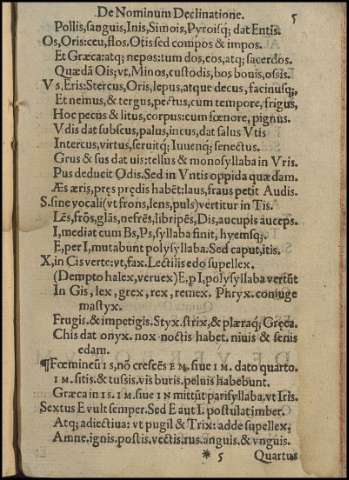 De Nominum Declinatione. 5
Pollis, sanguis, Inis, Simois, Pyroisq; dat Entis.
Os, Oris: ceu, flos. Otis sed compos & impos.
Et Græca: atq; nepos: tum dos, cos, atq; sacerdos.
Quædã Ois; vt, Minos, custodis, bos bouis, ossis.
Vs, Eris: Stercus, Oris, lepus, atque decus, facinusq;,
Et nemus, & tergus, pectus, cum tempore, frigus,
Hoc pecus & litus, corpus: cum fœnore, pignus.
Vdis dat subscus, palus, incus, dat salus Vtis
Intercus, virtus, seruitq; Iuuenq; senectus.
Grus & sus dat uis: tellus & monosyllaba in Vris.
Pus deducit Odis. Sed in Vntis oppida quædam.
Æs æris, pres prędis habēt: laus, fraus petit Audis.
S. sine vocali (vt frons, lens, puls) vertitur in Tis.
Lēs, frōs, glãs, nefrēs, libripēs, Dis, aucupis auceps.
I, mediat cum Bs, Ps, syllaba finit, hyemsq;.
E, per I, mutabunt polysyllaba. Sed caput, itis.
X, in Cis verte: vt, fax. Lectilis edo supellex.
(Dempto halex, veruex) E, p I, polysyllaba vertũt
In Gis, lex, grex, rex, remex. Phryx. coniuge
mastyx.
Frugis. & impetigis. Styx. strix, & plæraq; Gręca.
Chis dat onyx. nox noctis habet. niuis & senis
edam.
¶Fœmineũ IS, nõ crescẽs EM. siue IM. dato quarto.
IM. sitis. & tussis. vis buris. peluis habebunt.
Græca in IS. IM. siue IN mittũt parisyllaba. vt Iris.
Sextus E vult semper. Sed E aut I. postulat imber.
Atq; adiectiua: vt pugil & Trix: adde supellex;
Amne. ignis. postis. vectis. rus. anguis. & vnguis.
* 5 Quartus